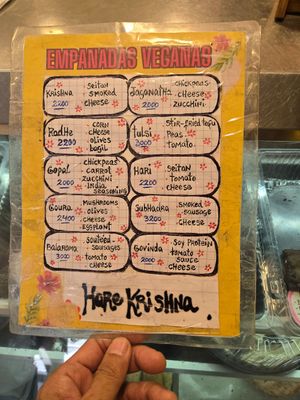 EMPANADAS VEGANAS
Krishna
2200
Seitan
smoked
cheese
Jaganatha
2000
chickpeas
cheese
zucchini
Radhe
2200
corn
cheese
olives
basil
Tulsi
3000
Stir-fried tofu
Peas
tomato
Gopal
2000
chickpeas
carrot
zucchini
India
seasoning
Hari
2200
Seitan
Tomato
cheese
Goura
2400
mushrooms
olives
cheese
eggplant
Subhadra
3200
smoked
sausage
cheese
Balarama
3000
sausages
tomato
cheese
Govinda
2000
Soy protein
tomato
sauce
cheese
Hare Krishna